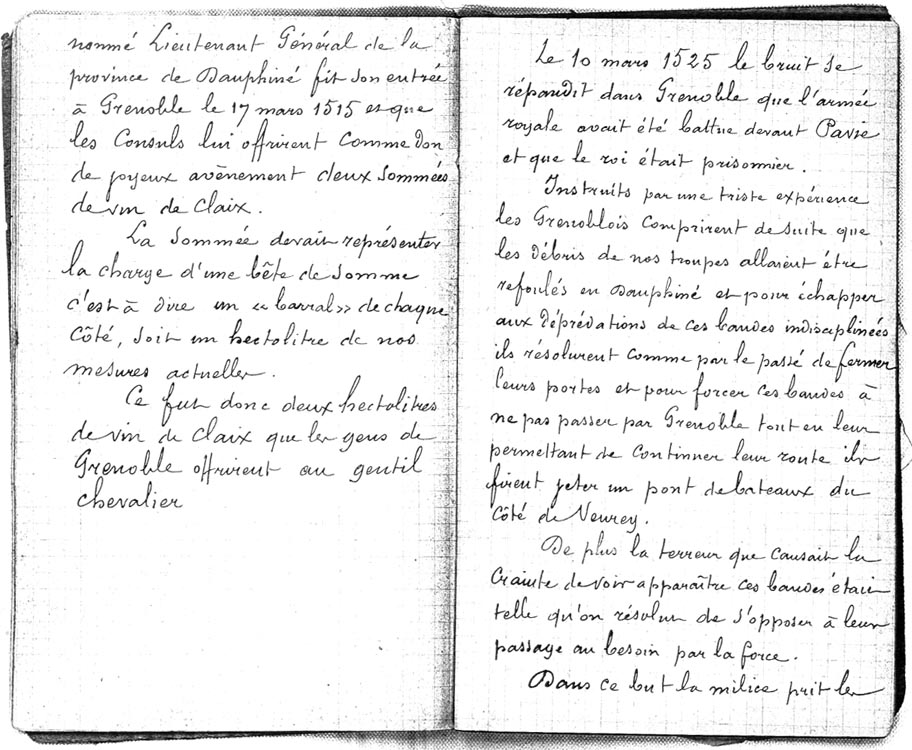 nommé Lieutenant Général de la
province de Dauphiné fit son entrée
à Grenoble le 17 mars 1515 et que
les Consuls lui offrirent comme don
de joyeux avènement deux Sommées
de vin de Claix.
La Sommée devait représenter
la charge d'une bête de somme
c'est à dire un « barral » de chaque
côté, soit un hectolitre de nos
mesures actuelles.
Ce fut donc deux hectolitres
de vin de Claix que les gens de
Grenoble offrirent au gentil
chevalier
Le 10 mars 1525 le bruit se
répandit dans Grenoble que l'armée
royale avait été battue devant Pavie
et que le roi était prisonnier.
Instruits par une triste expérience
les Grenoblois comprirent de suite que
les débris de nos troupes allaient être
refoulés en Dauphiné et pour échapper
aux déprédations de ces bandes indisciplinées
ils résolurent comme par le passé de fermer
leurs portes et pour forcer ces bandes à
ne pas passer par Grenoble tout en leur
permettant de continuer leur route ils
firent jeter un pont de bateaux du
côté de Veurey.
De plus la terreur que causait la
crainte de voir apparaître ces bandes était
telle qu'on résolut de s'opposer à leur
passage au besoin par la force.
Dans ce but la milice prit les